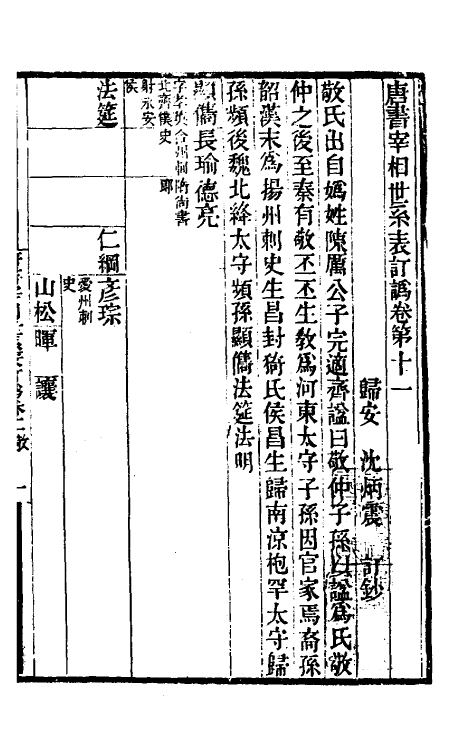 唐書宰相世系表訂譌卷第十一
歸安 沈炳震 訂鈔
敬氏出自媯姓陳厲公子完適齊謚曰敬仲子孫以謚爲氏敬
仲之後至秦有敬丕丕生教爲河東太守子孫因官家焉裔孫
韶漢末爲揚州刺史生昌封猗氏侯昌生歸南涼枹罕太守歸
孫頻後魏北絳太守頻孫顯儁法筵法明
顯儁長瑜德亮
字孝英合州刺隋尚書
北齊僕史 郎
射永安
侯
法筵 仁綱彦琮
愛州刺
史
山松暉 讓